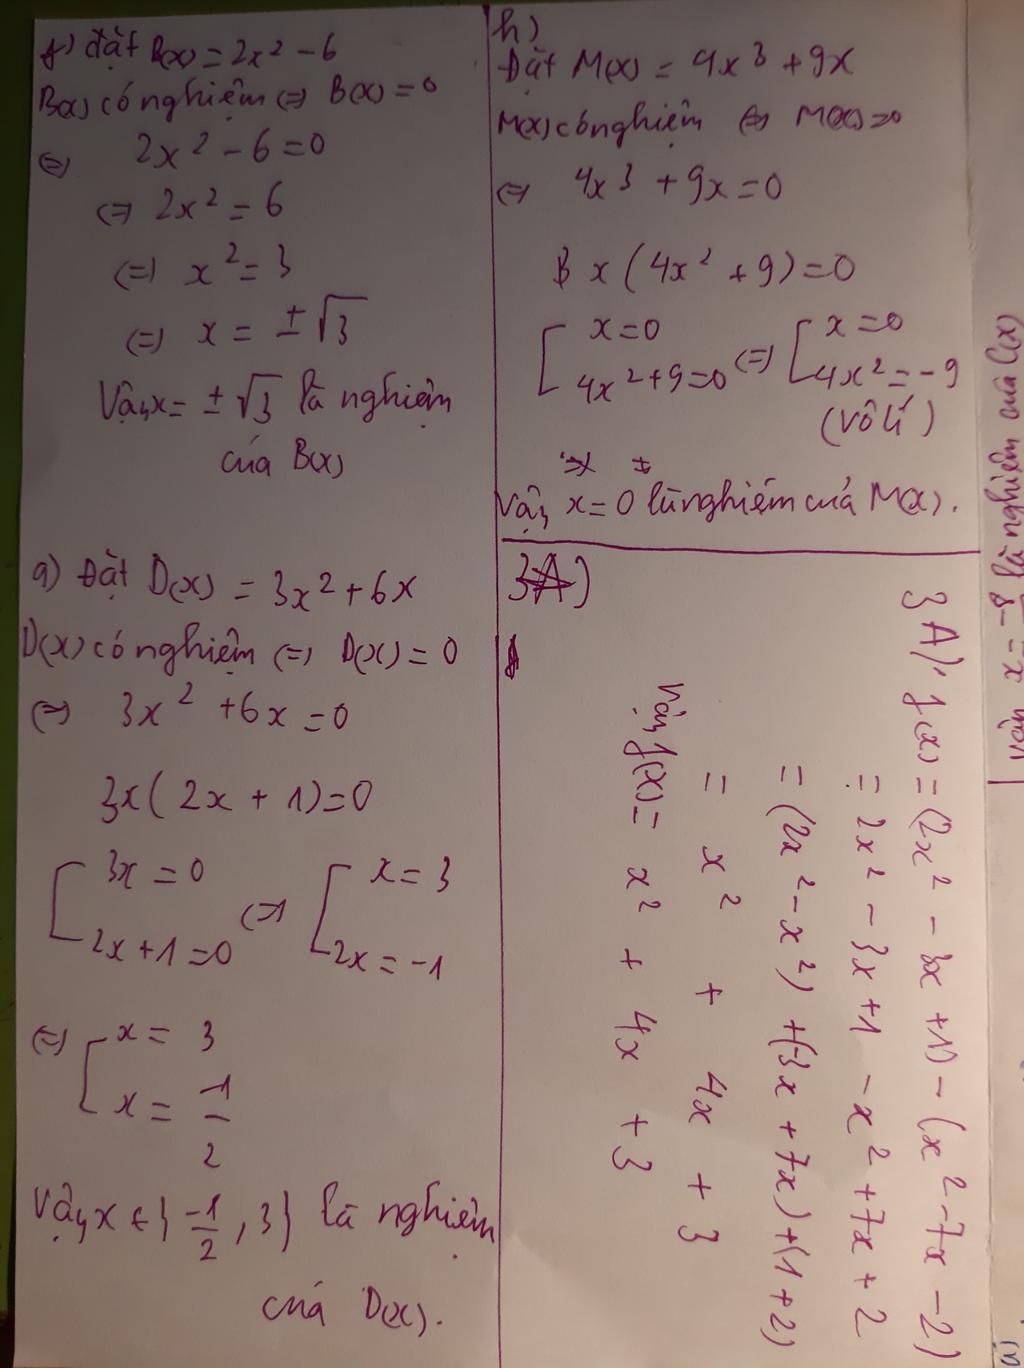 f) đặt B(x) = 2x² - 6
B(x) có nghiệm <=> B(x) = 0
<=> 2x² - 6 = 0
<=> 2x² = 6
<=> x² = 3
<=> x = ±√3
Vậy x = ±√3 là nghiệm
của B(x)
g) Đặt D(x) = 3x² + 6x
D(x) có nghiệm <=> D(x) = 0
<=> 3x² + 6x = 0
3x(2x + 1) = 0
[ 3x = 0 <=> [ x = 3
[ 2x + 1 = 0 [ 2x = -1
<=> [ x = 3
[ x = -1/2
Vậy x ∈ { -1/2 , 3 } là nghiệm
của D(x).
h)
Đặt M(x) = 4x³ + 9x
M(x) có nghiệm <=> M(x) = 0
<=> 4x³ + 9x = 0
x(4x² + 9) = 0
[ x = 0 <=> [ x = 0
[ 4x² + 9 = 0 [ 4x² = -9
(vô lí)
Vậy x = 0 là nghiệm của M(x).
3A)
3A) f(x) = (2x² - 3x + 1) - (x² - 7x - 2)
= 2x² - 3x + 1 - x² + 7x + 2
= (2x² - x²) + (-3x + 7x) + (1 + 2)
= x² + 4x + 3
Vậy f(x) = x² + 4x + 3
là nghiệm của C(x)